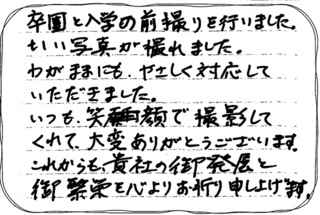 卒園と入学の前撮りを行いました。
いい写真が撮れました。
わがままにも、やさしく対応して
いただきました。
いつも、笑顔で撮影して
くれて、大変ありがとうございます。
これからも、貴社の御発展と
御繁栄を心よりお祈り申し上げます。